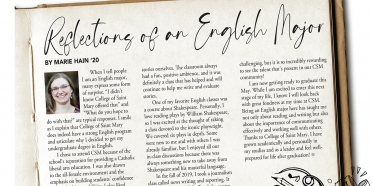 Reflections of an English Major
BY MARIE HAIN '20
When I tell people
I am an English major,
many express some form
of surprise. "I didn't
know College of Saint
Mary offered this" and
"What do you hope to
do with that?" are typical responses. I smile
as I explain that College of Saint Mary
does indeed have a strong English program
and articulate why I decided to get my
undergraduate degree in English.
I chose to attend CSM because of the
school's reputation for providing a Catholic
liberal arts education. I was also drawn
to the all-female environment and the
emphasis on building students' confidence
stories ourselves. The classroom always
had a fun, positive ambience, and it was
definitely a class that has helped and will
continue to help me write and evaluate
stories.
One of my favorite English classes was
a course about Shakespeare. Formally, I
love reading plays by William Shakespeare,
so I was excited at the thought of taking
a class devoted to the iconic playwright.
We covered six plays in depth. Some
were new to me and with others I was
already familiar, but I enjoyed all our
in-class discussions because there was
always something new to take away from
Shakespeare and his masterful language.
In the fall of 2019, I took a journalism
class called news writing and reporting. It
challenging, but it is so incredibly rewarding
to see the talent that's present in our CSM
community!
I am now getting ready to graduate this
May. While I am excited to enter this next
stage of my life, I know I will look back
with great fondness at my time at CSM.
Being an English major has taught me
not only about reading and writing but also
about the importance of communicating
effectively and working well with others.
Thanks to College of Saint Mary, I have
grown academically and personally in
my studies and as a leader and feel well-
prepared for life after graduation!